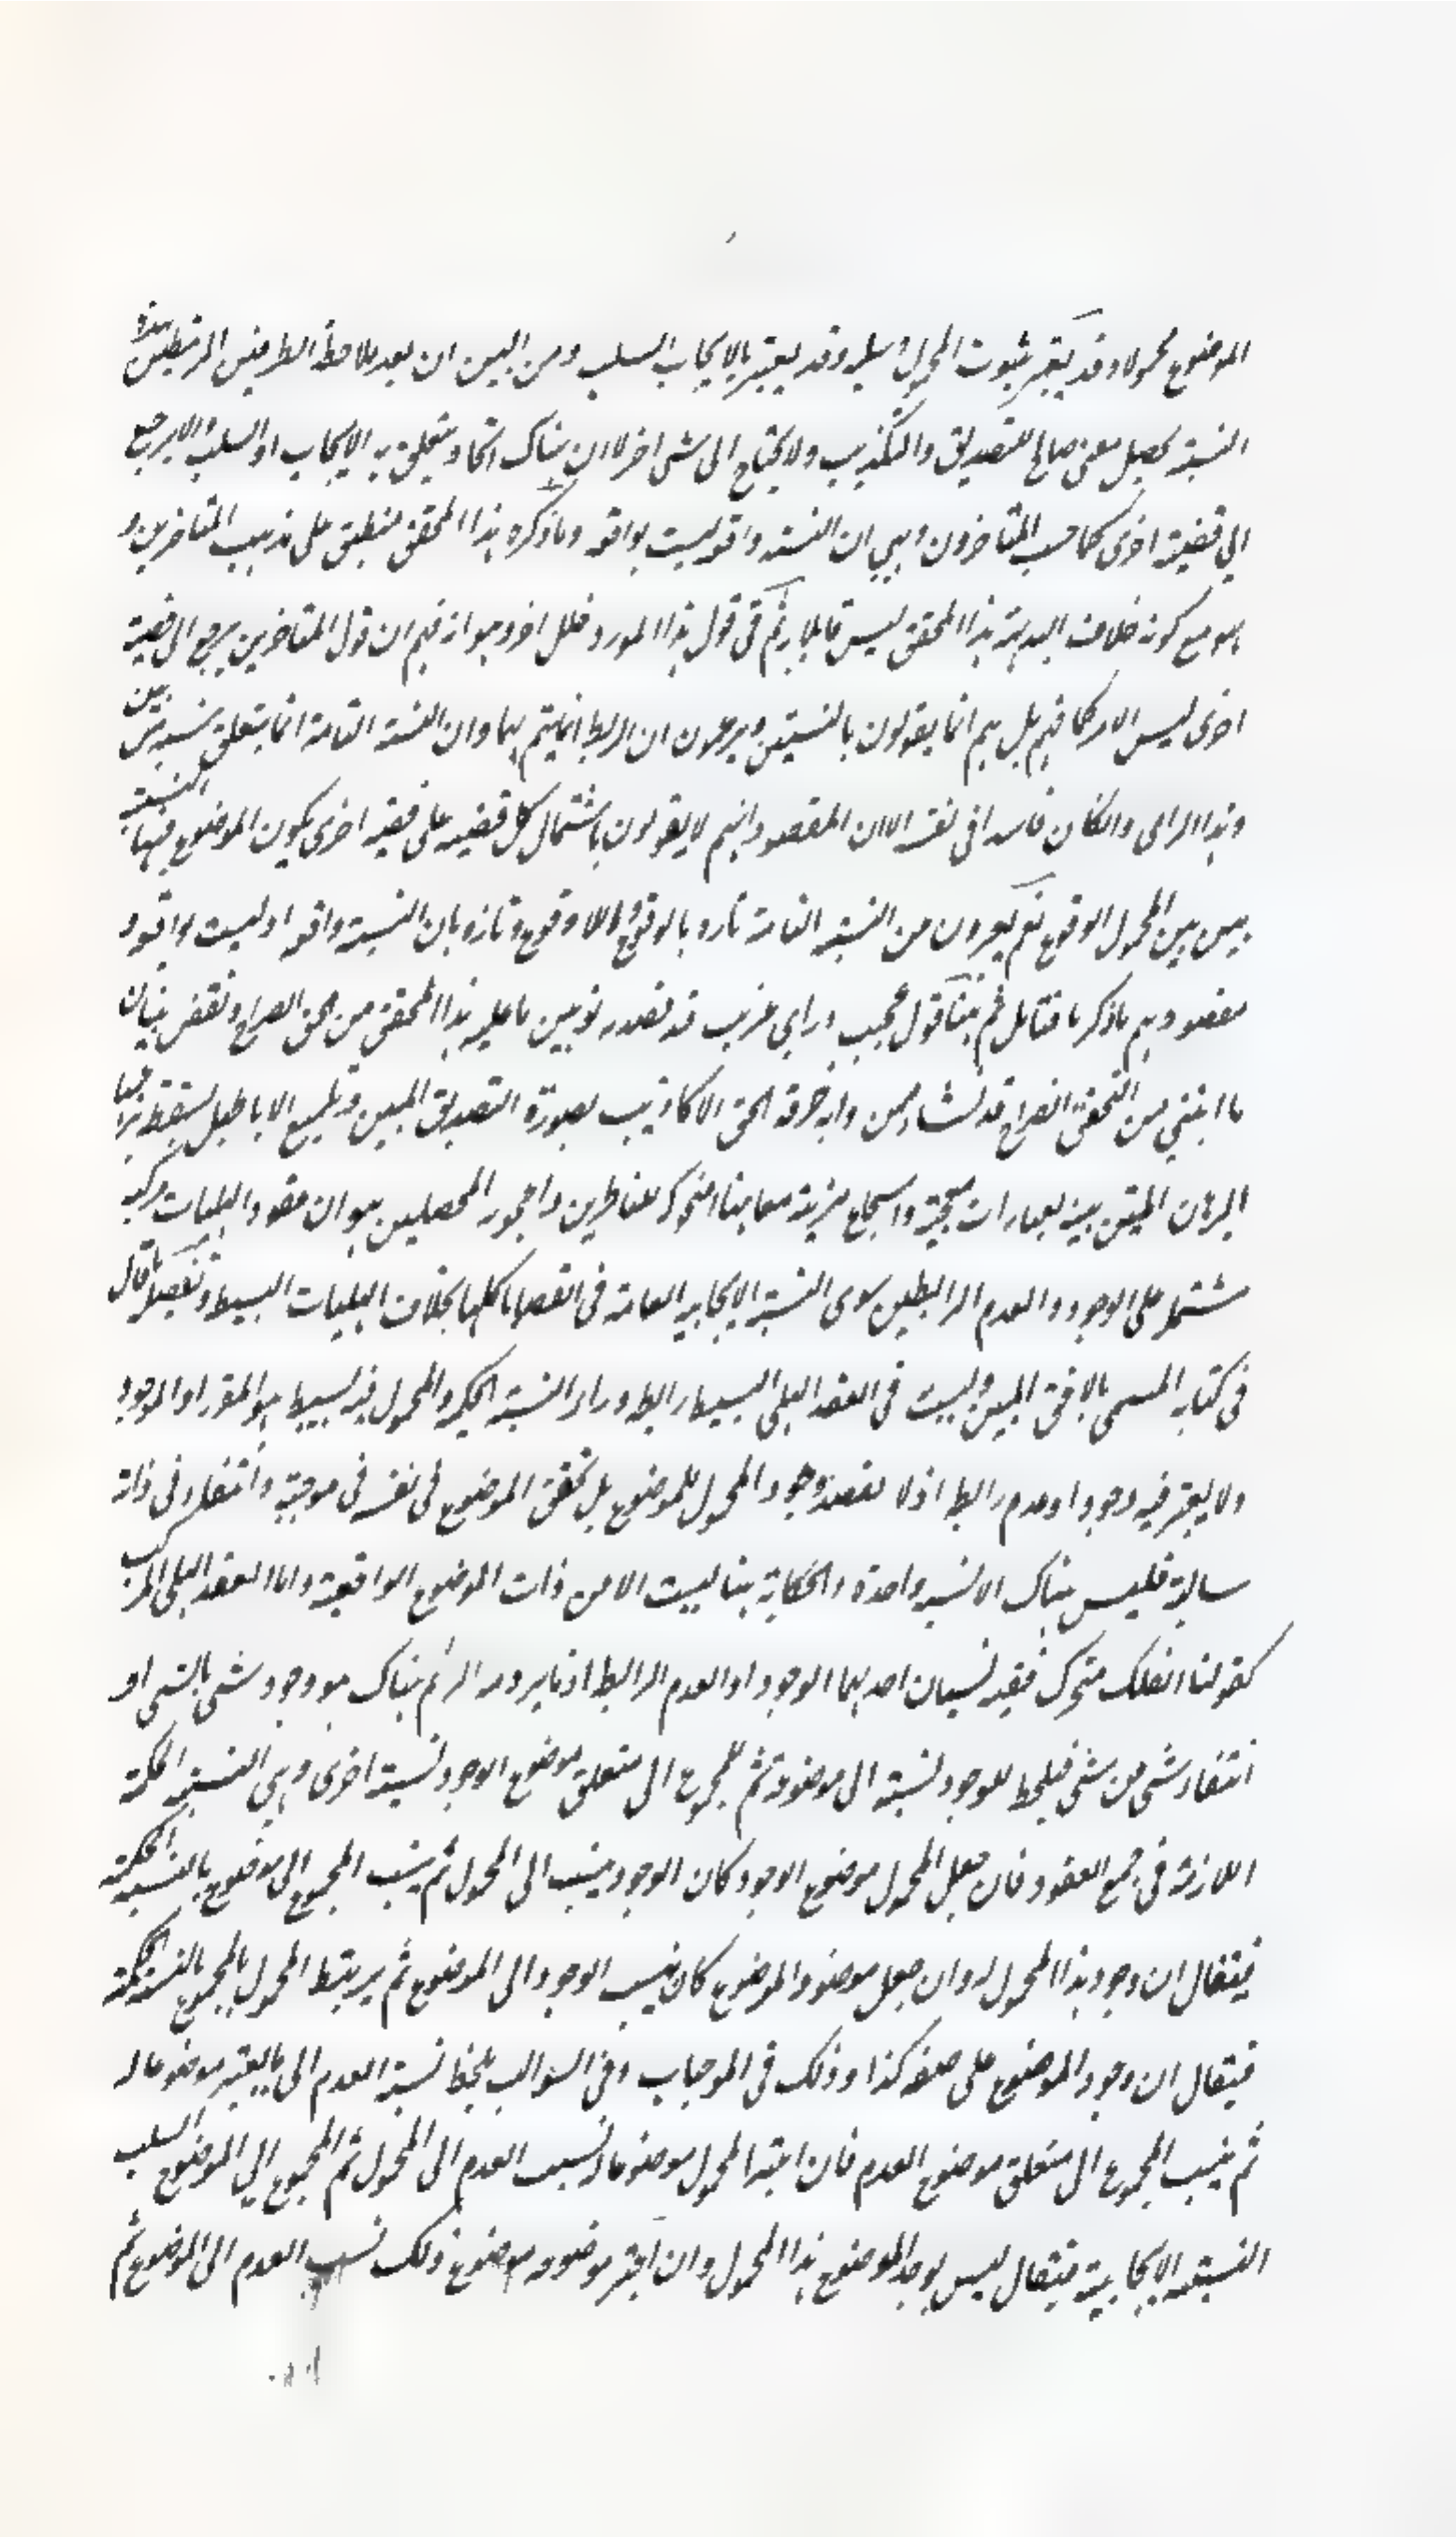 الموضوع محمولا وقد يعتبر ثبوت المحمول او سلبه وقد يعتبر بالايجاب والسلب ومن البين ان بعد ملاحظة الطرفين المرتبطين بهذه
النسبة يحصل معنى صالح للتصديق والتكذيب ولا يحتاج الى شئ اخر لا ان هناك اتحاد يتعلق به الايجاب او السلب والا يرجع
الى قضية اخرى كما حسب المتاخرون وهي ان النسبة واقعة ليست بواقعة وما ذكره هذا المحقق منطبق على مذهب المتاخرين و
هو مع كونه خلاف البديهة هذا المحقق ليس قائلا به ثم في قول هذا المورد خلل اخر وهو انه فهم ان قول المتاخرين يرجع الى قضية
اخرى ليس الامر كما فهم بل هم انما يقولون بالنسبتين ويزعمون ان الربط انما يتم بهما وان النسبة التامة انما يتعلق بنسبة بين بين
وهذا الراى وان كان فاسدا في نفسه الا ان المقصود انهم لا يقولون باشتمال كل قضية على قضية اخرى يكون الموضوع فيها النسبة
بين بين والمحمول الوقوع نعم يعبرون عن النسبة التامة تارة بالوقوع واللاوقوع وتارة بان النسبة واقعة او ليست بواقعة و
مقصودهم ما ذكرنا فتامل ثم هنا قول عجيب وراى غريب قد تصدر توهين ما عليه هذا المحقق من الحق الصراح ونقض بنيان
ما ابتنى من التحقيق القراح قد نشأ ممن دابه خرفة الحق الاكاذيب بصورة التصديق المبين وتلميع الاباطيل
البرهان المتين بينه بعبارات مبهجة واسجاع مزينة هو ان عقود الهليات المركبة
مشتملة على الوجود والعدم الرابطين سوى النسبة الايجابية العامة في القضايا كلها بخلاف الهليات البسيطة وتفصيله ما قال
في كتابه المسمى بالافق المبين وليست في العقد الهلى البسيط رابطة وراء النسبة الحكمية والمحمول في البسيط هو المتقرر او الموجود
ولا يعتبر فيه وجود او عدم رابط اذ لا يقصد وجود المحمول للموضوع بل تحقق الموضوع في نفسه في موجبة وانتفاءه في ذاته
سالبة فليس هناك الا نسبة واحدة والحكاية هنا ليست الا من ذات الموضوع الواقعية واما العقد الهلى المركب
كقولنا الفلك متحرك ففيه نسبتان احداهما الوجود او العدم الرابط اذ ما يرومه الرائم هناك هو وجود شئ بالشئ او
انتفاء شئ من شئ فيلحظ للوجود نسبة الى موضوعه ثم للمجموع الى متعلق موضوع الوجود نسبة اخرى وهي النسبة الحكمية
اللازمة في جميع العقود فان جعل المحمول موضوع الوجود كان الوجود ينسب الى المحمول ثم ينسب المجموع الى موضوع بالنسبة الحكمية
فيقال ان وجود هذا المحمول له وان جعل موضوعه الموضوع كان ينسب الوجود الى الموضوع ثم يرتبط المحمول بالمجموع بالنسبة الحكمية
فيقال ان وجود الموضوع على صفة كذا وذلك في الموجبات وفي السوالب يلحظ نسبة العدم الى ما يعتبر موضوعا له
ثم ينسب المجموع الى متعلق موضوع العدم فان اعتبر المحمول موضوعا له نسب العدم الى المحمول ثم المجموع الى الموضوع بسلب
النسبة الايجابية فيقال ليس يوجد للموضوع هذا المحمول وان اعتبر موضوعه موضوع ذلك نسب العدم الى الموضوع ثم